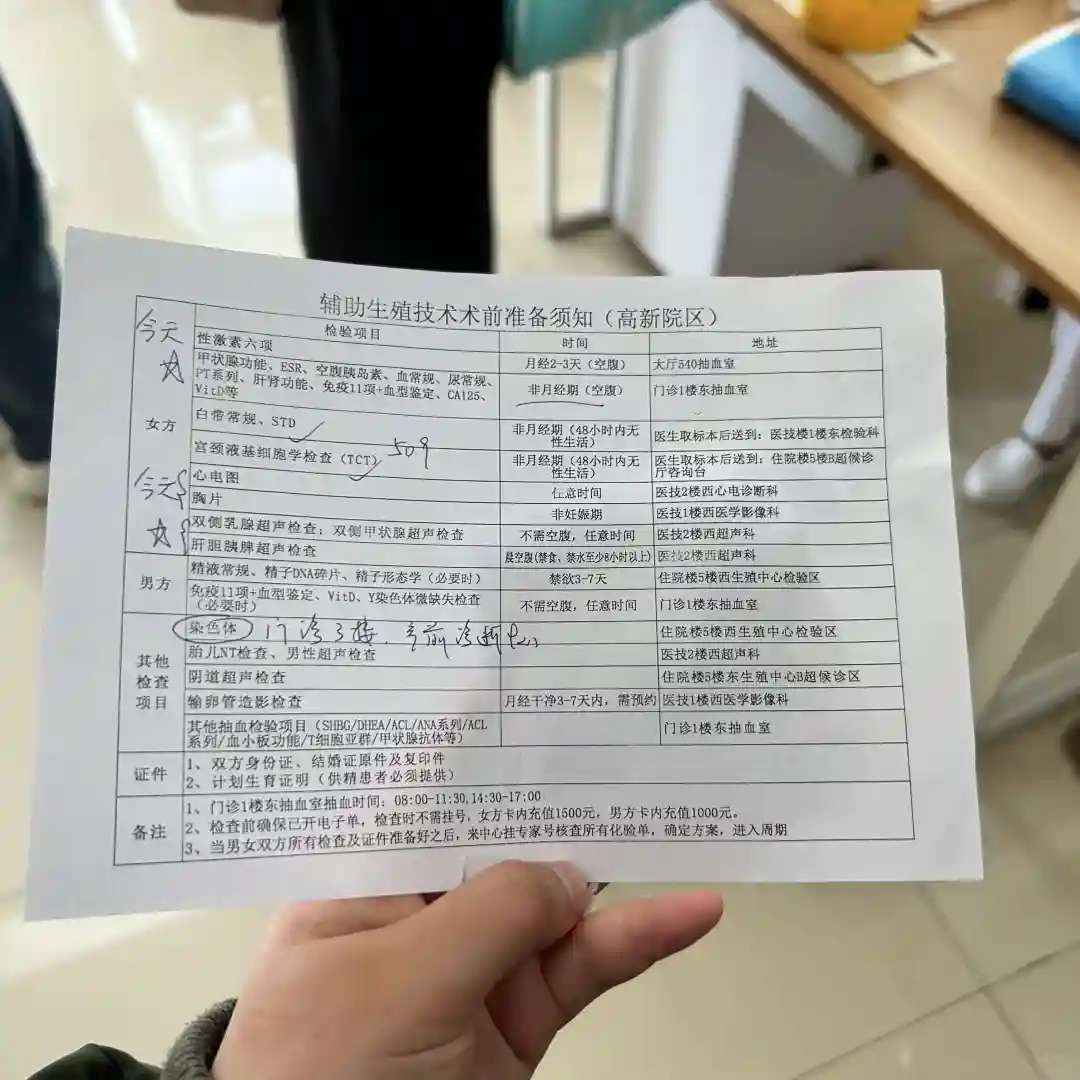 辅助生殖技术术前准备须知（高新院区）
检验项目 时间 地址
今天
性激素六项 月经2-3天（空腹） 大厅540抽血室
甲状腺功能、ESR、空腹胰岛素、血常规、尿常规、
PT系列、肝肾功能、免疫11项+血型鉴定、CA125、
VitD等
非月经期（空腹） 门诊1楼东抽血室
女方
白带常规、STD
非月经期（48小时内无
性生活）
医生取标本后送到：医技楼1楼东检验科
宫颈液基细胞学检查（TCT） 509
非月经期（48小时内无
性生活）
医生取标本后送到：住院楼5楼B超候诊
厅咨询台
今天
心电图 任意时间 医技2楼西心电诊断科
胸片 非妊娠期 医技1楼西医学影像科
双侧乳腺超声检查；双侧甲状腺超声检查 不需空腹，任意时间 医技2楼西超声科
肝胆胰脾超声检查 晨空腹(禁食、禁水至少8小时以上) 医技2楼西超声科
男方
精液常规、精子DNA碎片、精子形态学（必要时） 禁欲3-7天 住院楼5楼西生殖中心检验区
免疫11项+血型鉴定、VitD、Y染色体微缺失检查
（必要时）
不需空腹，任意时间 门诊1楼东抽血室
其他
检查
项目
染色体 门诊3楼 产前诊断中心 住院楼5楼西生殖中心检验区
胎儿NT检查、男性超声检查 医技2楼西超声科
阴道超声检查 住院楼5楼东生殖中心B超候诊区
输卵管造影检查 月经干净3-7天内，需预约 医技1楼西医学影像科
其他抽血检验项目（SHBG/DHEA/ACL/ANA系列/ACL
系列/血小板功能/T细胞亚群/甲状腺抗体等）
门诊1楼东抽血室
证件
1、双方身份证、结婚证原件及复印件
2、计划生育证明（供精患者必须提供）
备注
1、门诊1楼东抽血室抽血时间：08:00-11:30,14:30-17:00
2、检查前确保已开电子单，检查时不需挂号，女方卡内充值1500元，男方卡内充值1000元。
3、当男女双方所有检查及证件准备好之后，来中心挂专家号核查所有化验单，确定方案，进入周期